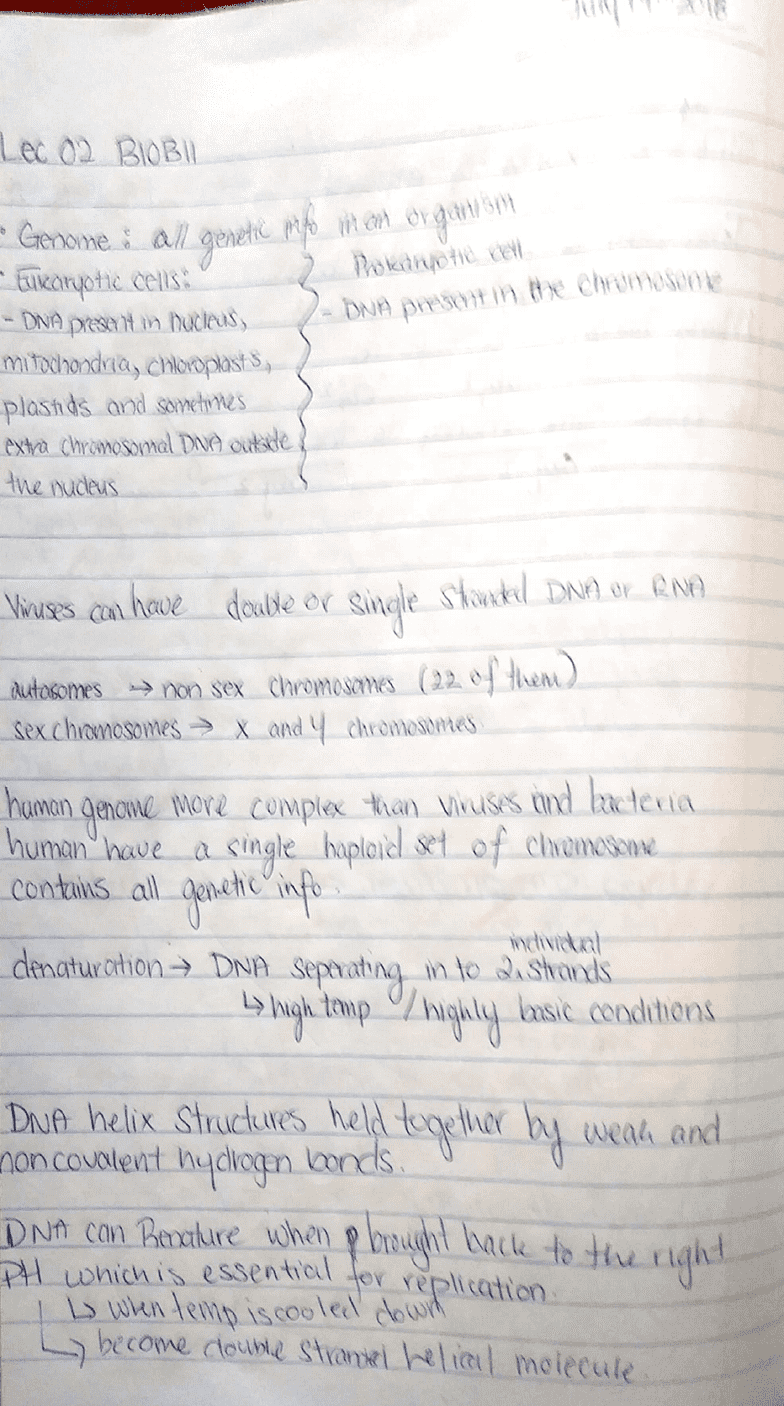 2018
Lec 02 BIOB11
• Genome: all genetic info in an organism
• Eukaryotic cells:
- DNA present in nucleus,
mitochondria, chloroplasts,
plastids and sometimes
extra chromosomal DNA outside
the nucleus
Prokaryotic cell
- DNA present in the chromosome
Viruses can have double or single stranded DNA or RNA
autosomes → non sex chromosomes (22 of them)
sex chromosomes → x and y chromosomes
human genome more complex than viruses and bacteria
human have a single haploid set of chromosome
contains all genetic info.
denaturation → DNA seperating in to 2 individual strands
↳ high temp / highly basic conditions
DNA helix structures held together by weak and
noncovalent hydrogen bonds.
DNA can Renature when brought back to the right
PH which is essential for replication.
↳ when temp is cooled down
↳ become double stranded helical molecule.